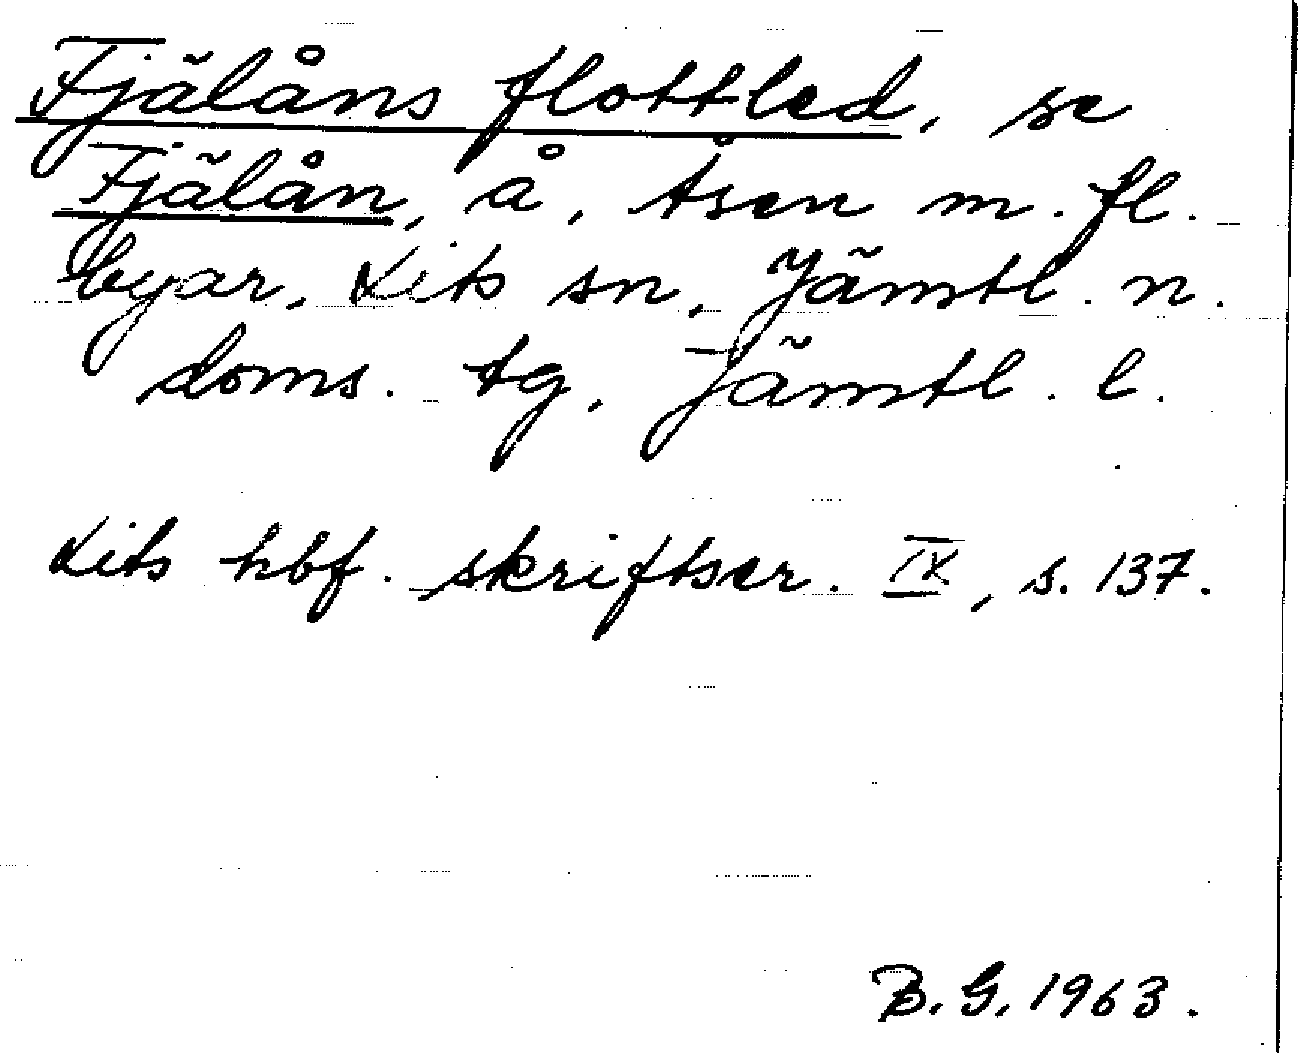 Fjälåns flottled, se
Fjälån, å, Åsen m. fl.
byar, Lits sn, Jämtl. n.
doms. tg, Jämtl. l.
Lits hbf. skriftser. IX, s. 137.
B. G. 1963.